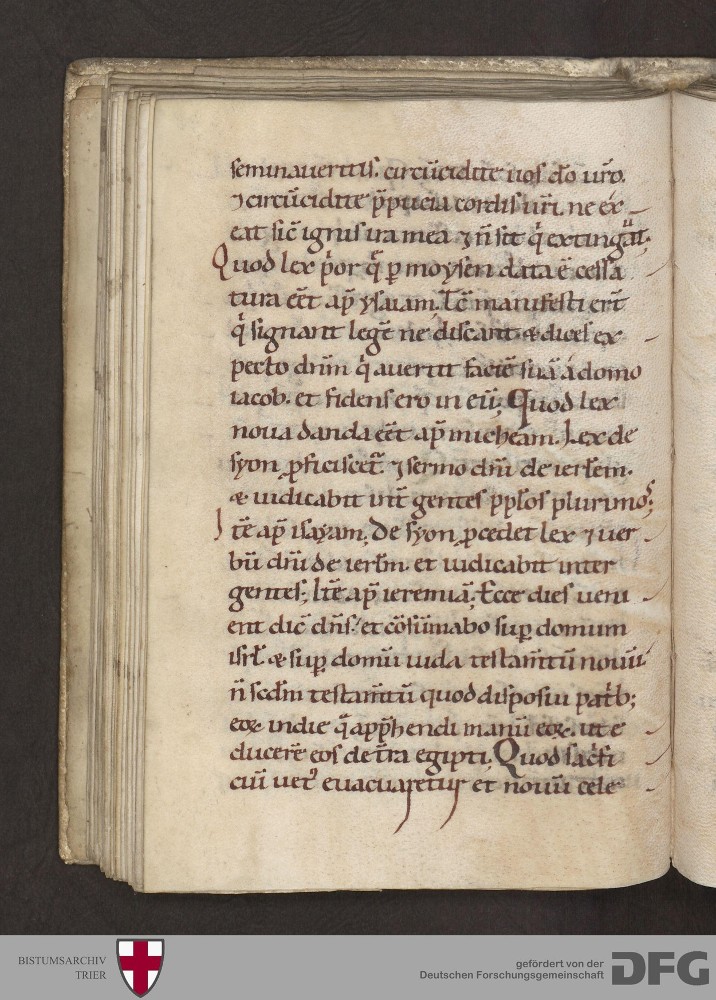 seminaueritis. circūcidite uos dō ur̄o.
⁊ circūcidite p̄pucia cordis ur̄i. ne ex
eat sic̄ ignis ira mea ⁊ n̄ sit q́ extinguat.
Quod lex p̍or q̄ p̱ moysen data ē cessa
tura eēt ap̄ ysaiam. Tc̄ manifesti er̄t
q́ signant legē ne discant. & dicet ex
pecto dnm̄ q́ auertit faciē suā á domo
iacob. et fidens ero in eū; Quod lex
noua danda eēt ap̄ micheam. Lex de
syon ꝓficiscet᷑. ⁊ sermo dn̄i de ierl̄em.
& iudicabit int̄ gentes pp̄los plurimos;
Itē ap̄ isayam; De syon ꝓcedet lex ⁊ uer
bū dn̄i de ierl̄m. et iudicabit inter
gentes; Itē ap̄ ieremiā; Ecce dies ueni
ent dic̄ dn̄s. et cōsūmabo sup̱ domum
isrl̄. & sup̱ domū iuda testam̄tū nouū
n̄ scdm̄ testam̄tū quod disposui patrib;
eoꝝ in die q̄ app̄hendi manū eoꝝ. ut e
ducerē eos de t̄ra egipti. Quod sac̍fi
ciū uet᷒ euacuaretur et nouū cele
BISTUMSARCHIV
TRIER
gefördert von der
Deutschen Forschungsgemeinschaft
DFG